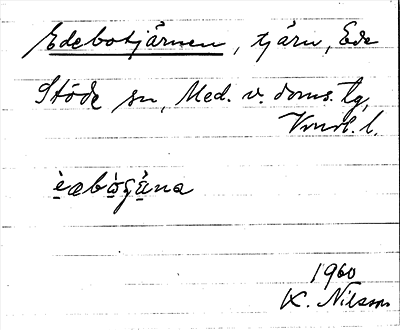 Edebotjärnen, tjärn, Ede
Stöde sn, Med. v. doms. lg,
Vmdl. l.
èæbògàna
1960
K. Nilsson